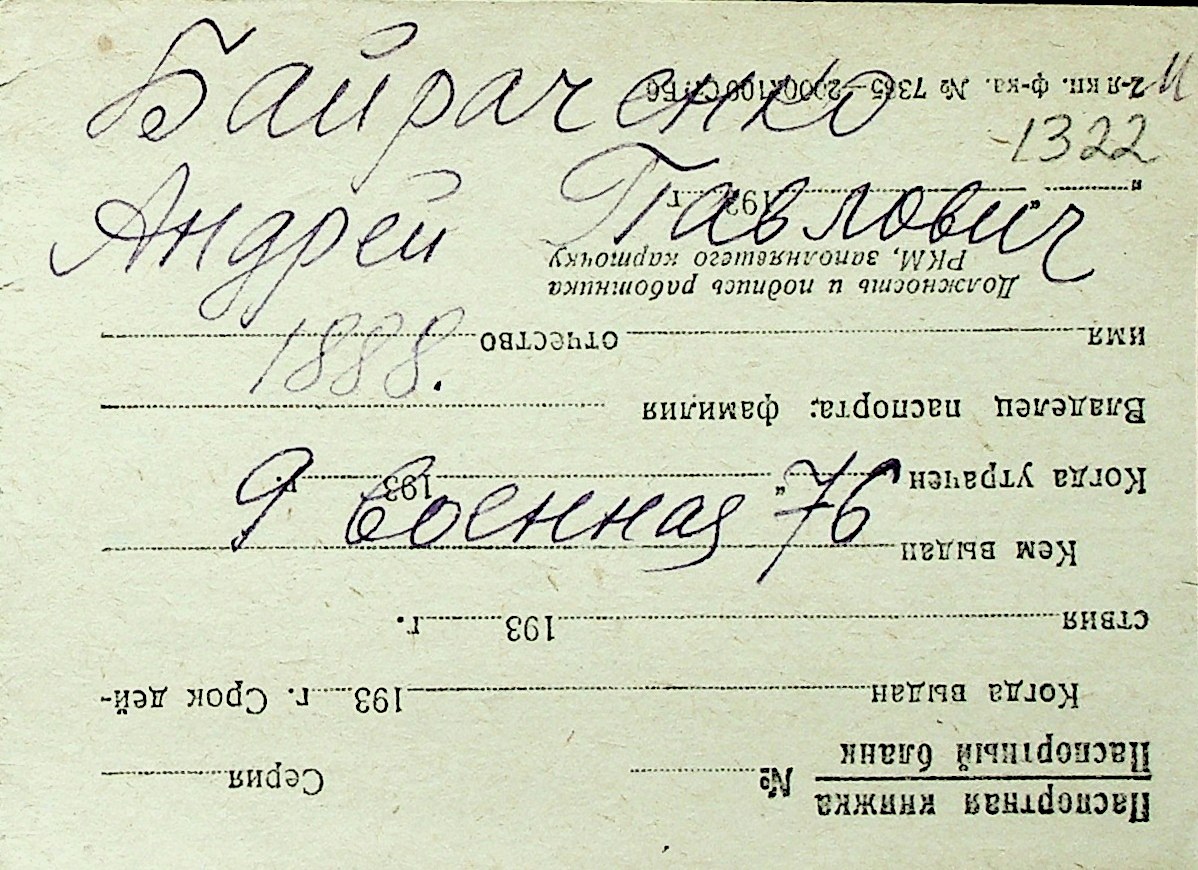 Байраченко
Андрей Павлович
1888.
9 Военная 76
М
1322
Паспортная книжка
Паспортный бланк
№ Серия
Когда выдан 193 г. Срок дей-
ствия 193 г.
Кем выдан
Когда утрачен „ 193 г.
Владелец паспорта: фамилия
имя отчество
Должность и подпись работника
РКМ, заполняешего карточку
„ “ 193 г.
2-я кн. ф-ка. № 7365—2000